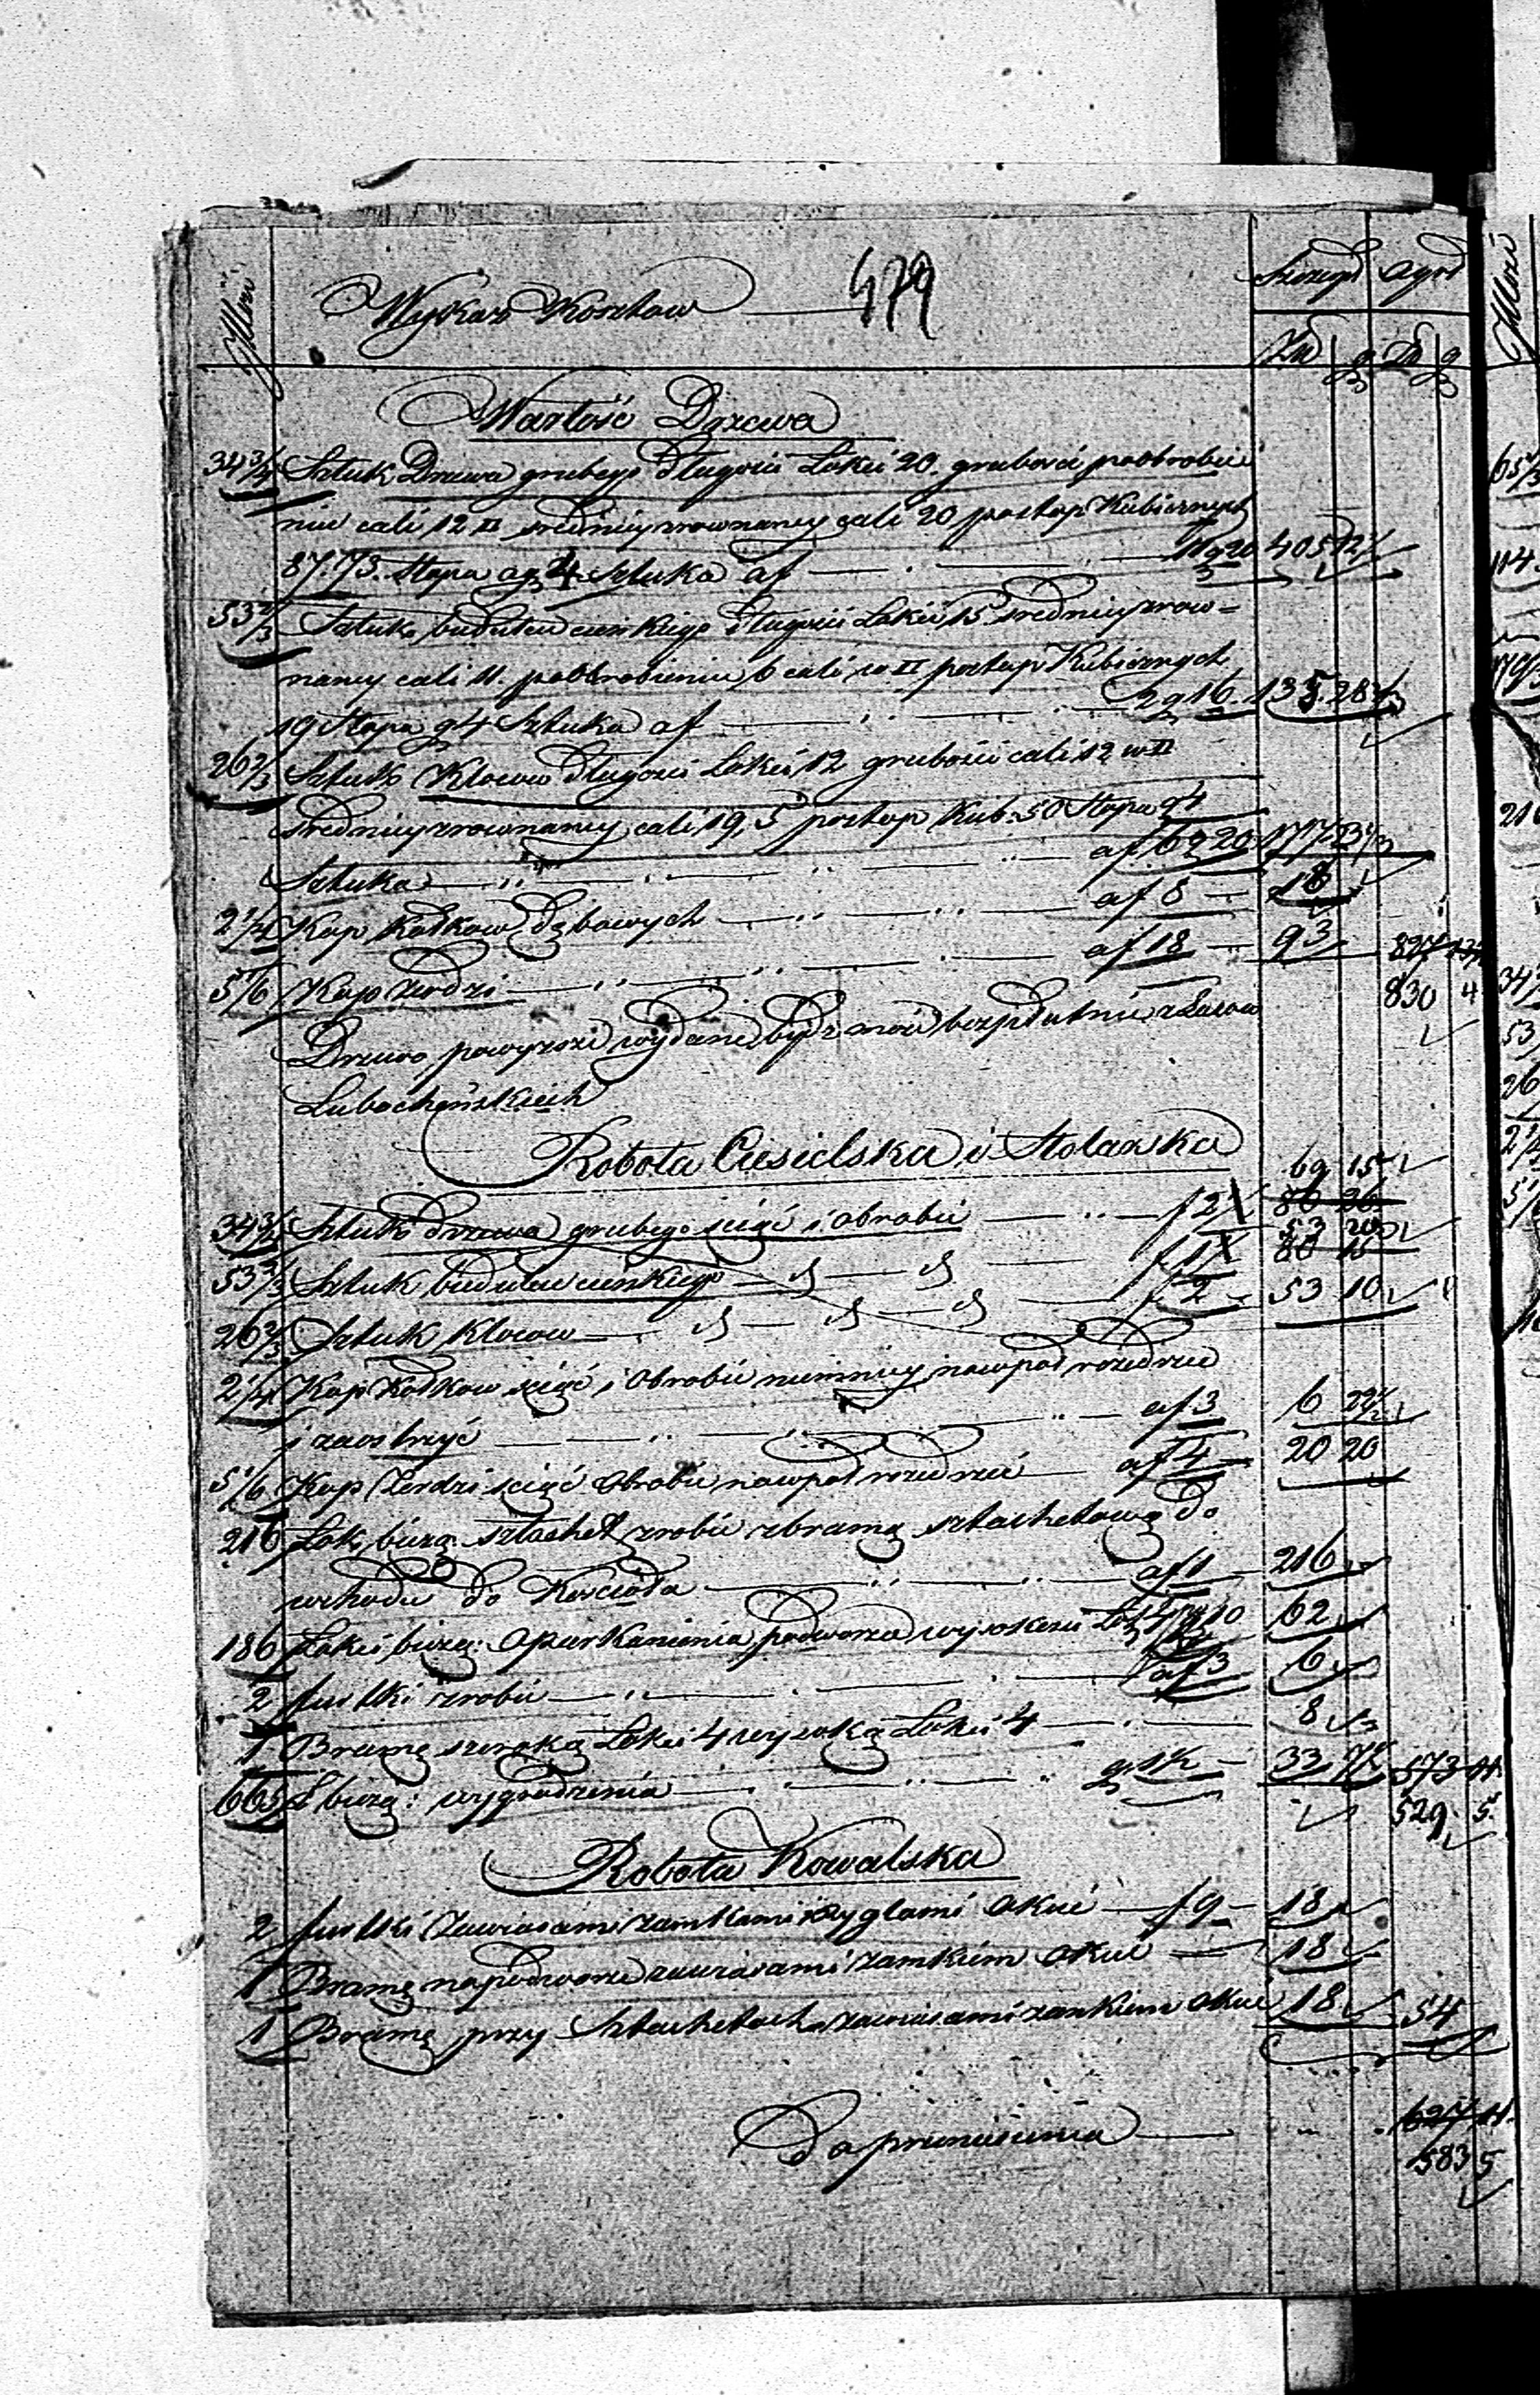 Ilość Wykaz Kosztow 479 Szczegół Ogół
Złł g Złł g
Wartość Drzewa
34 3/4 Sztuk Drzewa grubego długości Łokci 20 grubości po obrobie
niu cali 12 II srednicy zrownaney cali 20 po stop Kubicznych
87.73. Stopa a g 4 Sztuka af 11 g 20 405 12 1/2
53 2/3 Sztuk budulcu cienkiego długości Łokci 15 srednicy zrow=
naney cali 11. po obrobieniu 6 cali w II po stop Kubicznych
19 Stopa g 4 Sztuka af 2 g 16 135 28 2/3
26 2/3 Sztuk Klocow długości Łokci 12 grubości cali 12 w II
srednicy zrownaney cali 19,5 po stop Kub: 50 Stopa g 4
Sztuka af 6 g 20 177 23 1/3
2 1/4 Kop Kołkow dębowych af 8 18
5 1/6 Kop żerdzi af 18 93 827
830 4
Drzewo powyższe wydane bydź może bezpłatnie z Lasow
Lubocheńskich
Robota Ciesielska i Stolarska
69 15
34 3/4 Sztuk drzewa grubego sciąć i obrobić f 2 86 26
53 20
53 2/3 Sztuk budulcu cienkiego f 1 80 15
26 2/3 Sztuk Klocow f 2 53 10
2 1/4 Kop Kołkow sciąć i obrobić niemniey na wpoł rozedrzeć
i zaostrzyć af 3 6 22 1/2
5 1/6 Kop Żerdzi sciąć obrobić na wpoł rozedrzeć af 4 20 20
216 Łok bieżą: sztachet zrobić z bramą sztachetową do
wchodu do Kościoła af 1 216
186 Łokci bieżą: oparkanienia podworza wysokości Łok 4 g 10 62
2 furtki zrobić af 3 6
1 Bramę szeroką Łokci 4 wysoką Łokci 4 8
665 Ł bieżą: wygrodzenia g 1 1/2 33 7 1/2 573 11
529 5
Robota Kowalska
2 furtki zawiasami zamkami i ryglami okuć f 9 18
1 Bramę na podworze zawiasami zamkiem okuć 18
1 Bramę przy Sztachetach zawiasami zamkiem okuć 18 54
Do przeniesienia 627 11
583 5